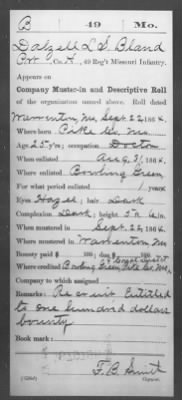 B 49 Mo.
Dalzell L. S. Bland
Pvt., Co. A, 49 Reg't Missouri Infantry.
Appears on
Company Muster-in and Descriptive Roll
of the organization named above. Roll dated
Warrenton, Mo, Sept. 22, 1864.
Where born Pike Co, Mo.
Age 25 y'rs; occupation Doctor
When enlisted Aug. 31, 1864.
Where enlisted Bowling Green
For what period enlisted 1 years.
Eyes Hazel; hair Dark
Complexion Dark; height 5 ft. 6 in.
When mustered in Sept. 22, 1864.
Where mustered in Warrenton, Mo
Bounty paid $ 100; due $ 100
Where credited Bowling Green, Pike Co, Mo
Company to which assigned
Remarks: Recruit Entitled
to one hundred dollars
bounty
Book mark:
F. B. Smith
Copyist.